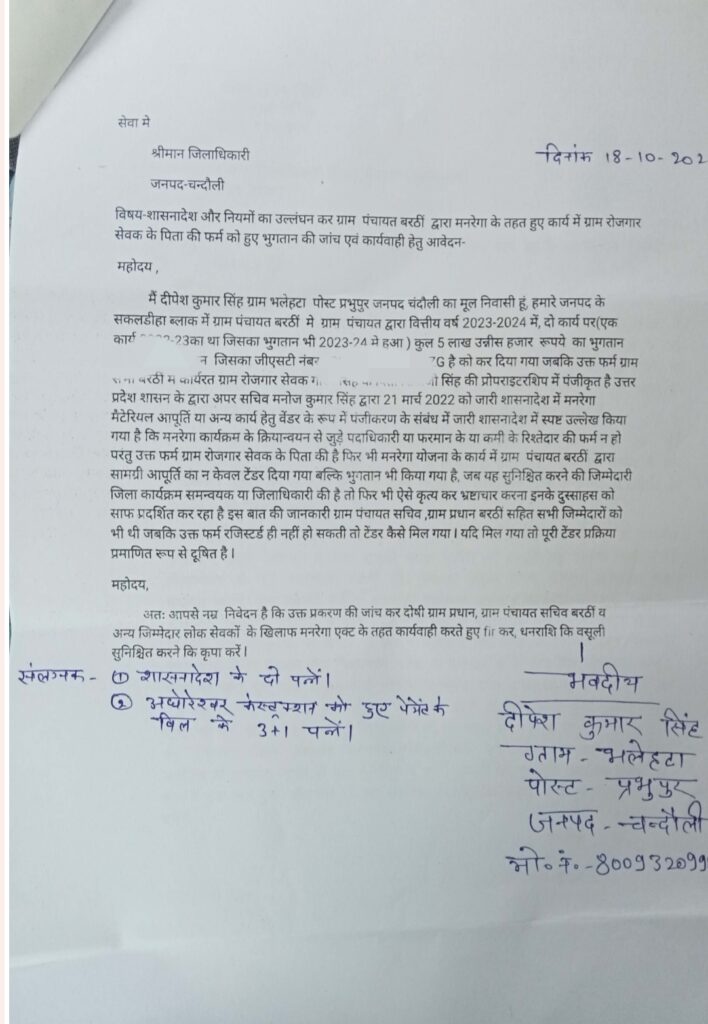 सेवा मे
श्रीमान जिलाधिकारी
दिनांक 18-10-202
जनपद-चन्दौली
विषय-शासनादेश और नियमों का उल्लंघन कर ग्राम पंचायत बरठीं द्वारा मनरेगा के तहत हुए कार्य में ग्राम रोजगार
सेवक के पिता की फर्म को हुए भुगतान की जांच एवं कार्यवाही हेतु आवेदन-
महोदय ,
मैं दीपेश कुमार सिंह ग्राम भलेहटा पोस्ट प्रभुपुर जनपद चंदौली का मूल निवासी हूं, हमारे जनपद के
सकलडीहा ब्लाक में ग्राम पंचायत बरठीं मे ग्राम पंचायत द्वारा वित्तीय वर्ष 2023-2024 में, दो कार्य पर(एक
कार्य 23का था जिसका भुगतान भी 2023-24 मे हआ ) कुल 5 लाख उन्नीस हजार रूपये का भुगतान
न जिसका जीएसटी नंबर 7G है को कर दिया गया जबकि उक्त फर्म ग्राम
बरठी म कार्यरत ग्राम रोजगार सेवक सिंह की प्रोपराइटरशिप में पंजीकृत है उत्तर
प्रदेश शासन के द्वारा अपर सचिव मनोज कुमार सिंह द्वारा 21 मार्च 2022 को जारी शासनादेश में मनरेगा
मैटेरियल आपूर्ति या अन्य कार्य हेतु वेंडर के रूप में पंजीकरण के संबंध में जारी शासनादेश में स्पष्ट उल्लेख किया
गया है कि मनरेगा कार्यक्रम के क्रियान्वयन से जुड़े पदाधिकारी या फरमान के या कमी के रिश्तेदार की फर्म न हो
परंतु उक्त फर्म ग्राम रोजगार सेवक के पिता की है फिर भी मनरेगा योजना के कार्य में ग्राम पंचायत बरठीं द्वारा
सामग्री आपूर्ति का न केवल टेंडर दिया गया बल्कि भुगतान भी किया गया है, जब यह सुनिश्चित करने की जिम्मेदारी
जिला कार्यक्रम समन्वयक या जिलाधिकारी की है तो फिर भी ऐसे कृत्य कर भ्रष्टाचार करना इनके दुस्साहस को
साफ प्रदर्शित कर रहा है इस बात की जानकारी ग्राम पंचायत सचिव ,ग्राम प्रधान बरठीं सहित सभी जिम्मेदारों को
भी थी जबकि उक्त फर्म रजिस्टर्ड ही नहीं हो सकती तो टेंडर कैसे मिल गया । यदि मिल गया तो पूरी टेंडर प्रक्रिया
प्रमाणित रूप से दूषित है ।
महोदय,
अतः आपसे नम्र निवेदन है कि उक्त प्रकरण की जांच कर दोषी ग्राम प्रधान, ग्राम पंचायत सचिव बरठीं व
अन्य जिम्मेदार लोक सेवकों के खिलाफ मनरेगा एक्ट के तहत कार्यवाही करते हुए fir कर, धनराशि कि वसूली
सुनिश्चित करने कि कृपा करें ।
संलग्नक - ① शासनादेश के दो पन्ने।
② अघोरेश्वर कंस्ट्रक्शन को हुए पेमेंट के
बिल के 3+1 पन्ने।
भवदीय
दीपेश कुमार सिंह
ग्राम - भलेहटा
पोस्ट - प्रभुपुर
जनपद - चन्दौली
मो॰ नं॰ -800932099